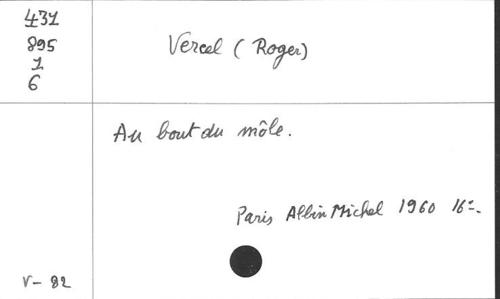 431
895
1
6
Vercel (Roger)
Au bout du môle.
Paris Albin Michel 1960 16°.
V- 82